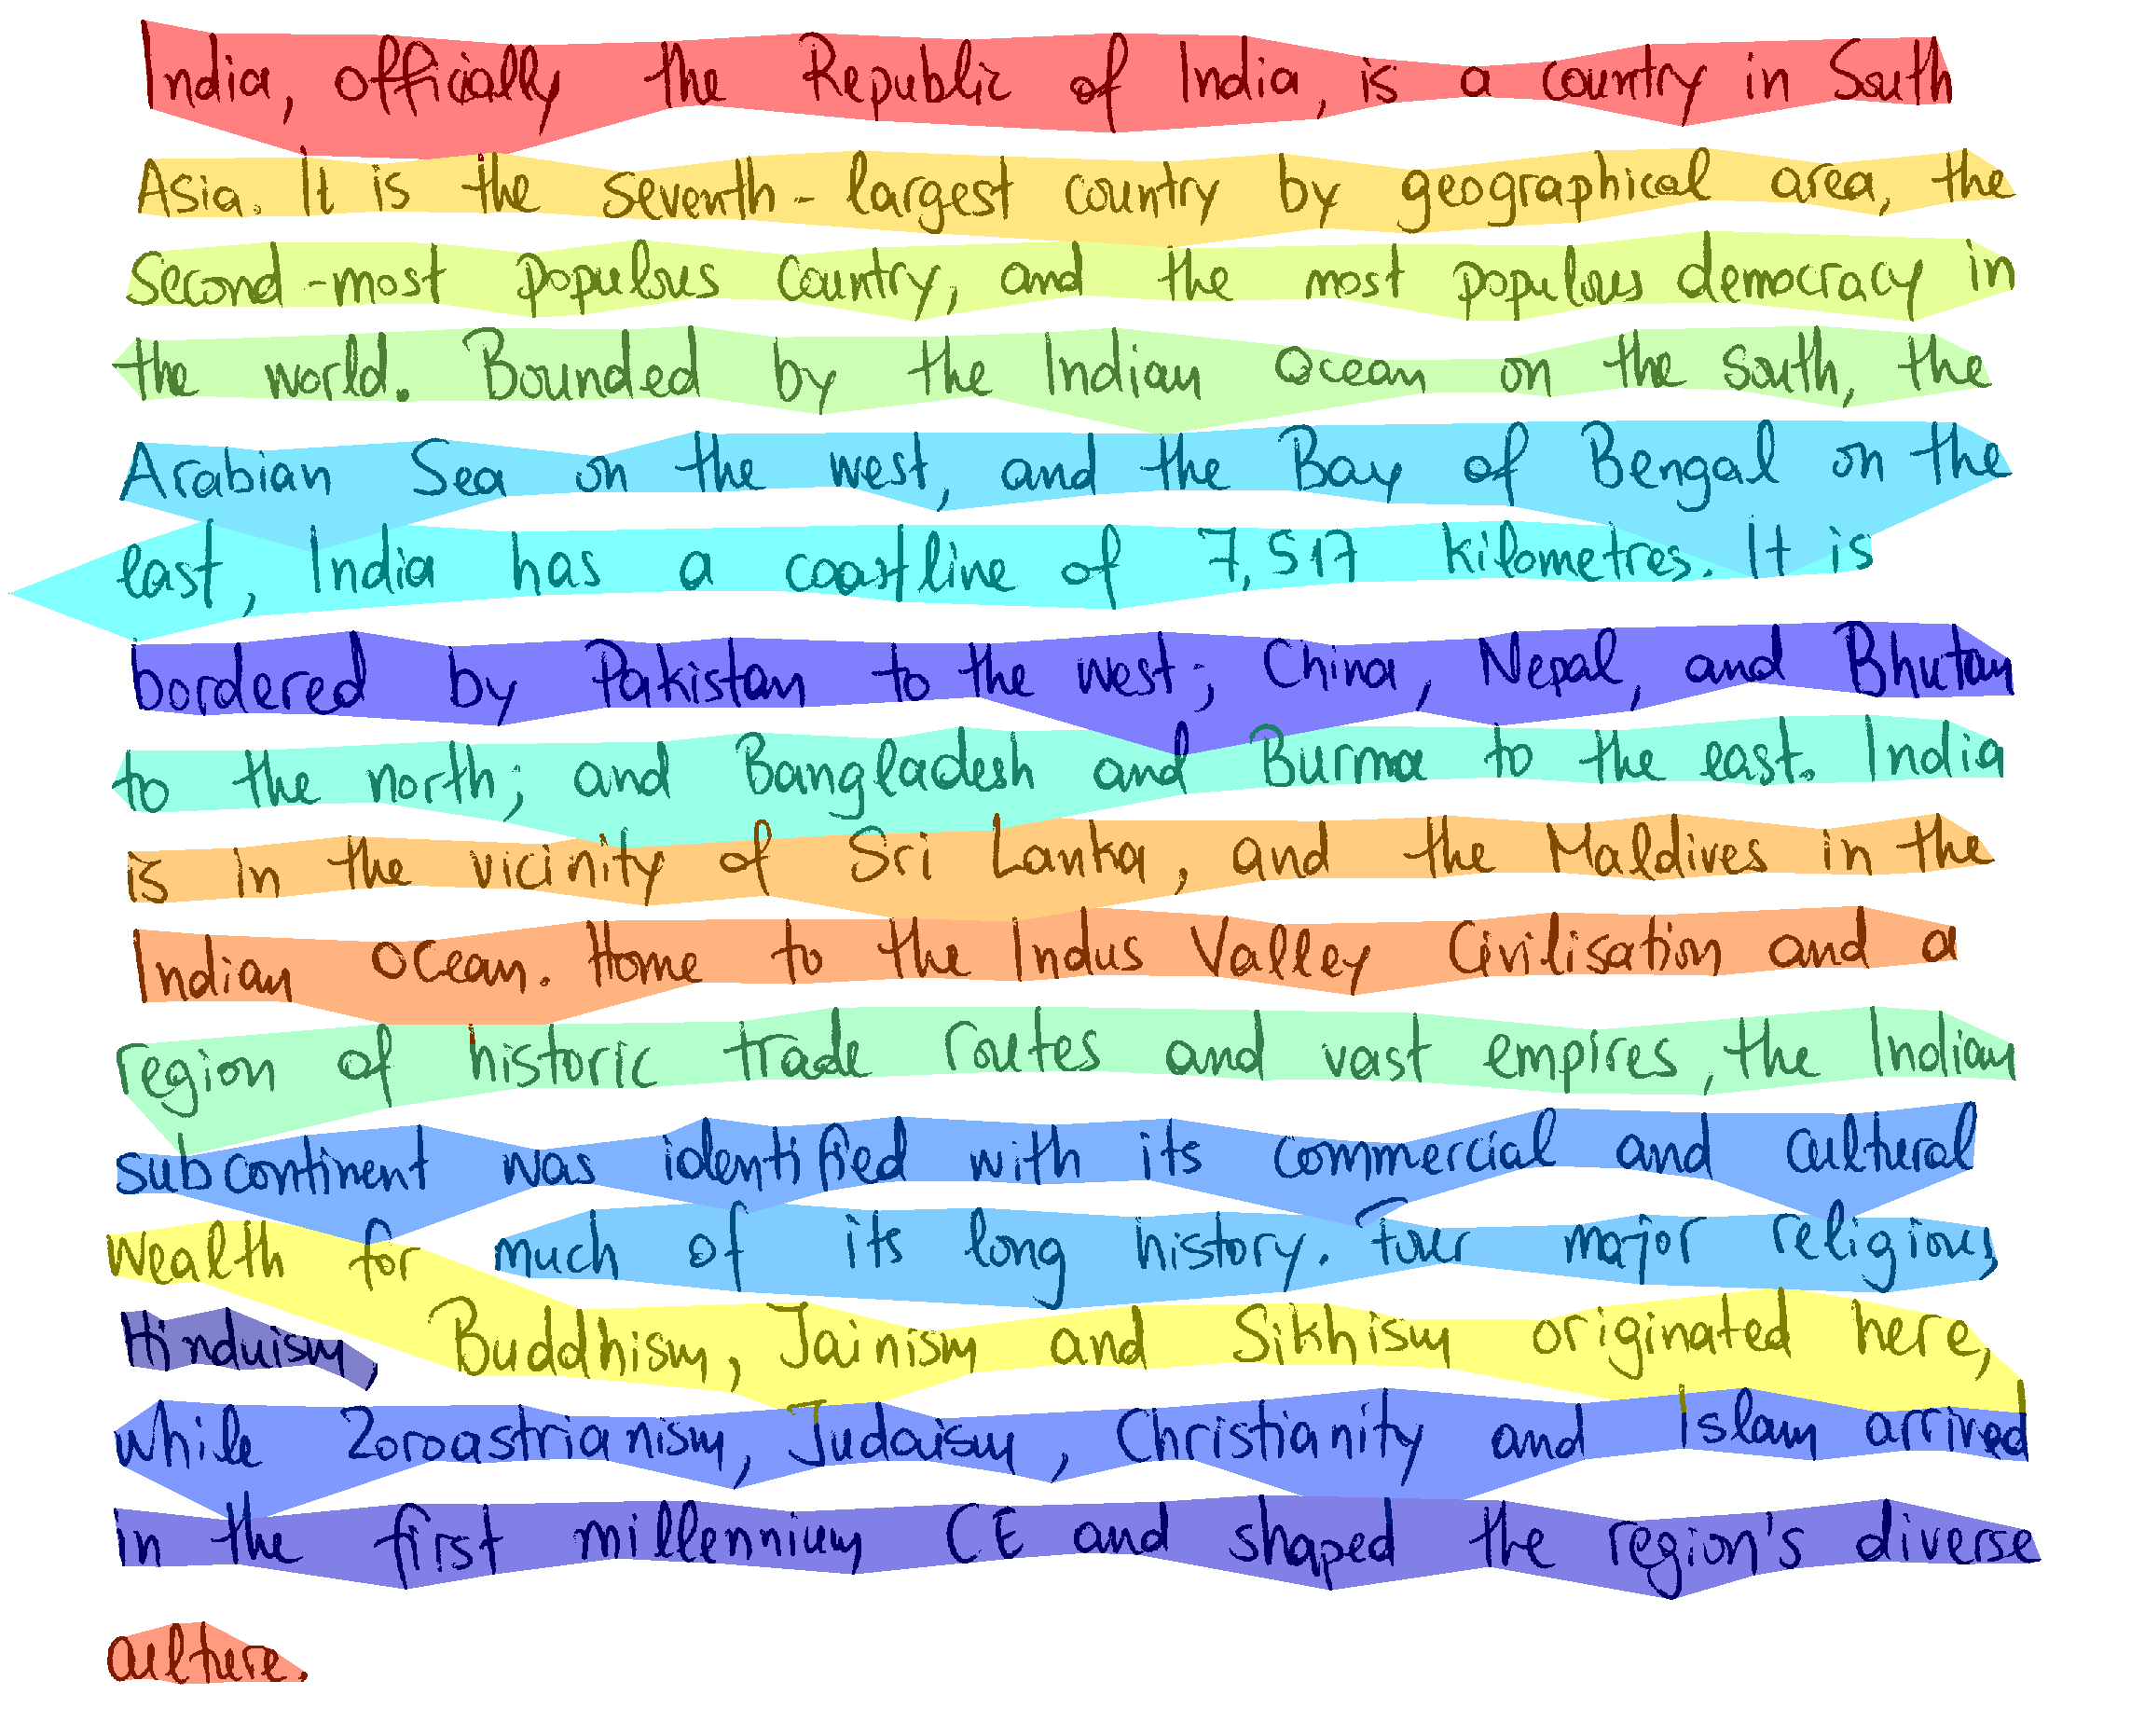 India, officially the Republic of India, is a country in South
Asia. It is the seventh-largest country by geographical area, the
second-most populous country, and the most populous democracy in
the world. Bounded by the Indian Ocean on the south, the
Arabian Sea on the west, and the Bay of Bengal on the
east, India has a coastline of 7,517 kilometres. It is
bordered by Pakistan to the west; China, Nepal, and Bhutan
to the north; and Bangladesh and Burma to the east. India
is in the vicinity of Sri Lanka, and the Maldives in the
Indian Ocean. Home to the Indus Valley Civilisation and a
region of historic trade routes and vast empires, the Indian
subcontinent was identified with its commercial and cultural
wealth for much of its long history. Four major religious,
Hinduism, Buddhism, Jainism and Sikhism originated here,
while Zoroastrianism, Judaism, Christianity and Islam arrived
in the first millennium CE and shaped the region's diverse
culture.